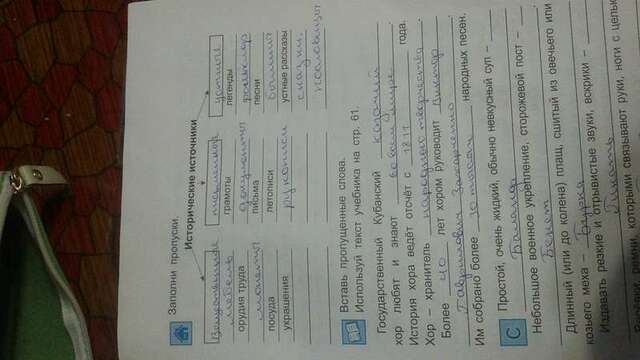 Заполни пропуски.
Исторические источники
Вещественные
мебель
орудия труда
монеты
посуда
украшения
письменные
грамоты
документы
письма
летописи
рукописи
устные
легенды
фольклор
песни
былины
устные рассказы
сказки
пословицы
Вставь пропущенные слова.
Используй текст учебника на стр. 61.
Государственный Кубанский казачий
хор любят и знают во всём мире.
История хора ведёт отсчёт с 1811 года.
Хор – хранитель народного творчества.
Более 40 лет хором руководит Виктор
Гаврилович Захарченко.
Им собрано более народных песен.
С Простой, очень жидкий, обычно невкусный суп –
Баланда
Небольшое военное укрепление, сторожевой пост –
Бекет
Длинный (или до колена) плащ, сшитый из овечьего или
козьего меха – Бурка
Издавать резкие и отрывистые звуки, вскрики –
которыми связывают руки, ноги с целью